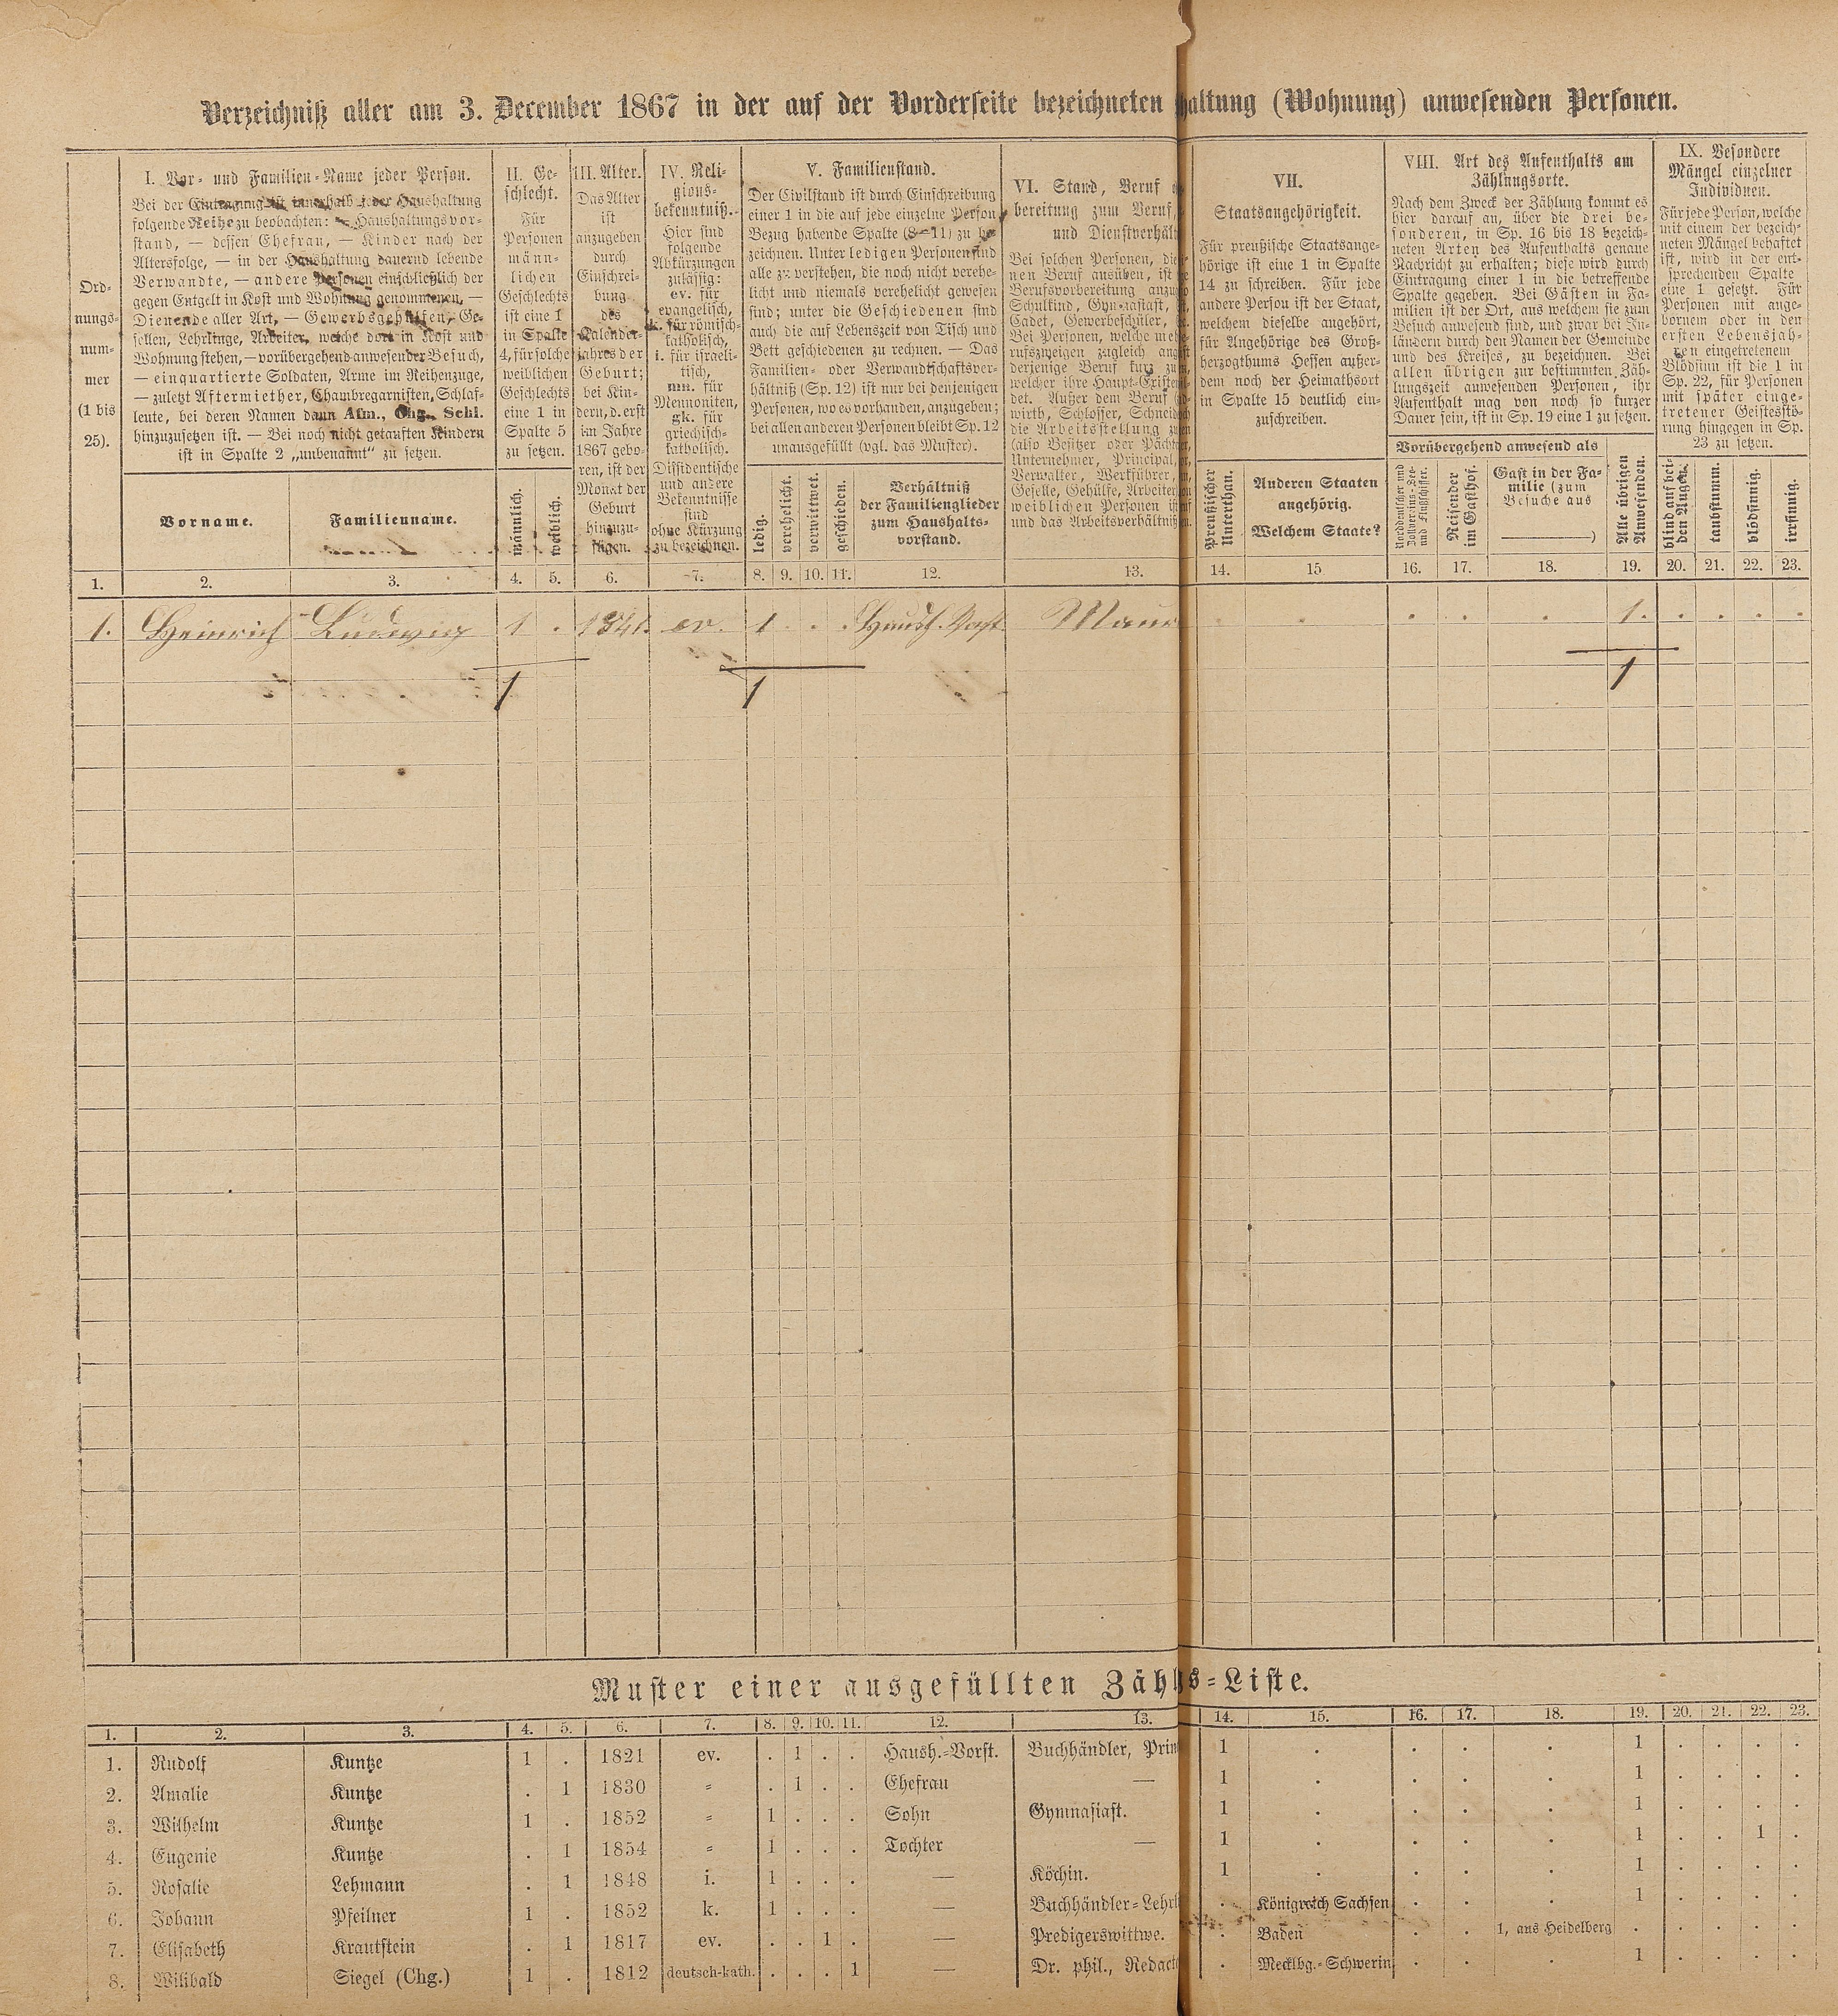 Verzeichniß aller am 3. December 1867 in der auf der Vorderseite bezeichneten haltung (Wohnung) anwesenden Personen.
Ord-
nungs-
num-
mer
(1 bis
25).
I. Vor- und Familien-Name jeder Person.
Bei der Eintragung ist innerhalb jeder Haushaltung
folgende Reihe zu beobachten: — Haushaltungsvor-
stand, — dessen Ehefrau, — Kinder nach der
Altersfolge, — in der Haushaltung dauernd lebende
Verwandte, — andere Personen einschließlich der
gegen Entgelt in Kost und Wohnung genommenen, —
Dienende aller Art, — Gewerbsgehülfen, Ge-
sellen, Lehrlinge, Arbeiter, welche dort in Kost und
Wohnung stehen, — vorübergehend anwesender Besuch,
— einquartierte Soldaten, Arme im Reihenzuge,
— zuletzt Aftermiether, Chambregarnisten, Schlaf-
leute, bei deren Namen dann Afm., Chg., Schl.
hinzuzusetzen ist. — Bei noch nicht getauften Kindern
ist in Spalte 2 „unbenannt“ zu setzen.
Vorname.
Familienname.
II. Ge-
schlecht.
Für
Personen
männ-
lichen
Geschlechts
ist eine 1
in Spalte
4, für solche
weiblichen
Geschlechts
eine 1 in
Spalte 5
zu setzen.
männlich.
weiblich.
III. Alter.
Das Alter
ist
anzugeben
durch
Einschrei-
bung
des
Kalender-
jahres der
Geburt;
bei Kin-
dern, d. erst
im Jahre
1867 gebo-
ren, ist der
Monat der
Geburt
hinzuzu-
fügen.
IV. Reli-
gions-
bekenntniß.
Hier sind
folgende
Abkürzungen
zulässig:
ev. für
evangelisch,
k. für römisch-
katholisch,
i. für israeli-
tisch,
mn. für
Mennoniten,
gk. für
griechisch-
katholisch.
Dissidentische
und andere
Bekenntnisse
sind
ohne Kürzung
zu bezeichnen.
V. Familienstand.
Der Civilstand ist durch Einschreibung
einer 1 in die auf jede einzelne Person
Bezug habende Spalte (8—11) zu be-
zeichnen. Unter ledigen Personen sind
alle zu verstehen, die noch nicht verehe-
licht und niemals verehelicht gewesen
sind; unter die Geschiedenen sind
auch die auf Lebenszeit von Tisch und
Bett geschiedenen zu rechnen. — Das
Familien- oder Verwandtschaftsver-
hältniß (Sp. 12) ist nur bei denjenigen
Personen, wo es vorhanden, anzugeben;
bei allen anderen Personen bleibt Sp. 12
unausgefüllt (vgl. das Muster).
ledig.
verehelicht.
verwittwet.
geschieden.
Verhältniß
der Familienglieder
zum Haushalts-
vorstand.
VI. Stand, Beruf
bereitung zum Beruf,
und Dienstverhält
Bei solchen Personen, die
nen Beruf ausüben, ist
Berufsvorbereitung anzu
Schulkind, Gymnasiast,
Cadet, Gewerbeschüler,
Bei Personen, welche meh
rufszweigen zugleich ang
derjenige Beruf kurz zu
welcher ihre Haupt-Existen
det. Außer dem Beruf
wirth, Schlosser, Schneid
die Arbeitsstellung zu
(also Besitzer oder Pächt
Unternehmer, Principal,
Verwalter, Werkführer,
Geselle, Gehülfe, Arbeiter
weiblichen Personen ist
und das Arbeitsverhältniß
VII.
Staatsangehörigkeit.
Für preußische Staatsange-
hörige ist eine 1 in Spalte
14 zu schreiben. Für jede
andere Person ist der Staat,
welchem dieselbe angehört,
für Angehörige des Groß-
herzogthums Hessen außer-
dem noch der Heimathsort
in Spalte 15 deutlich ein-
zuschreiben.
Preußischer
Unterthan.
Anderen Staaten
angehörig.
Welchem Staate?
VIII. Art des Aufenthalts am
Zählungsorte.
Nach dem Zweck der Zählung kommt es
hier darauf an, über die drei be-
sonderen, in Sp. 16 bis 18 bezeich-
neten Arten des Aufenthalts genaue
Nachricht zu erhalten; diese wird durch
Eintragung einer 1 in die betreffende
Spalte gegeben. Bei Gästen in Fa-
milien ist der Ort, aus welchem sie zum
Besuch anwesend sind, und zwar bei In-
ländern durch den Namen der Gemeinde
und des Kreises, zu bezeichnen. Bei
allen übrigen zur bestimmten Zäh-
lungszeit anwesenden Personen, ihr
Aufenthalt mag von noch so kurzer
Dauer sein, ist in Sp. 19 eine 1 zu setzen.
Vorübergehend anwesend als
Norddeutscher und
Zollvereins-See-
und Flußschiffer.
Reisender
im Gasthof.
Gast in der Fa-
milie (zum
Besuche aus
)
Alle übrigen
Anwesenden.
IX. Besondere
Mängel einzelner
Individuen.
Für jede Person, welche
mit einem der bezeich-
neten Mängel behaftet
ist, wird in der ent-
sprechenden Spalte
eine 1 gesetzt. Für
Personen mit ange-
bornem oder in den
ersten Lebensjah-
ren eingetretenem
Blödsinn ist die 1 in
Sp. 22, für Personen
mit später einge-
tretener Geistesstö-
rung hingegen in Sp.
23 zu setzen.
blind auf bei-
den Augen.
taubstumm.
blödsinnig.
irrsinnig.
1. 2. 3. 4. 5. 6. 7. 8. 9. 10. 11. 12. 13. 14. 15 16. 17. 18. 19. 20. 21. 22. 23.
1. Heinrich Ludwig 1 . 1841. ev. 1 . . . Haush. Vorst. Maur . . . . . 1. . . . .
1 1 1
Muster einer ausgefüllten Zähl s-Liste.
1. 2. 3. 4. 5. 6. 7. 8. 9. 10. 11. 12. 13. 14. 15. 16. 17. 18. 19. 20. 21. 22. 23.
1. Rudolf Kuntze 1 . 1821 ev. . 1 . . Haush.-Vorst. Buchhändler, Prin 1 . . . . 1 . . . .
2. Amalie Kuntze . 1 1830 = . 1 . . Ehefrau — 1 . . . . 1 . . . .
3. Wilhelm Kuntze 1 . 1852 = 1 . . . Sohn Gymnasiast. 1 . . . . 1 . . . .
4. Eugenie Kuntze . 1 1854 = 1 . . . Tochter — 1 . . . . 1 . . 1 .
5. Rosalie Lehmann . 1 1848 i. 1 . . . — Köchin. 1 . . . . 1 . . . .
6. Johann Pfeilner 1 . 1852 k. 1 . . . — Buchhändler-Lehrl . Königreich Sachsen . . . 1 . . . .
7. Elisabeth Krautstein . 1 1817 ev. . . 1 . — Predigerswittwe. . Baden . . 1, aus Heidelberg . . . . .
8. Wilibald Siegel (Chg.) 1 . 1812 deutsch-kath. . . . 1 — Dr. phil., Redact . Mecklbg.-Schwerin . . . 1 . . . .